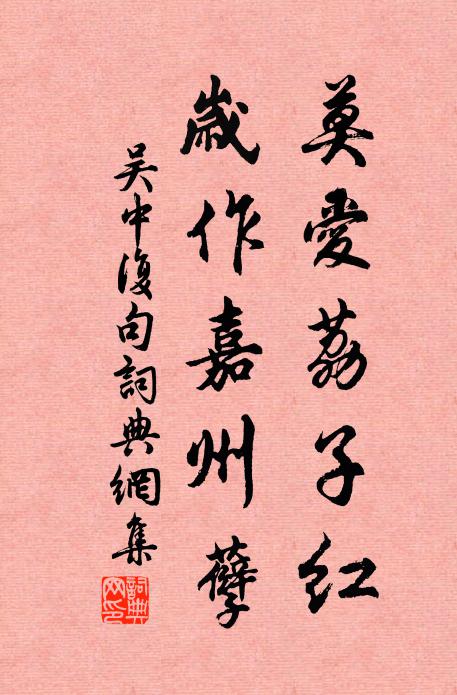 莫愛荔子紅
歲作嘉州孽
吳中復句詞典網集
詞典網印